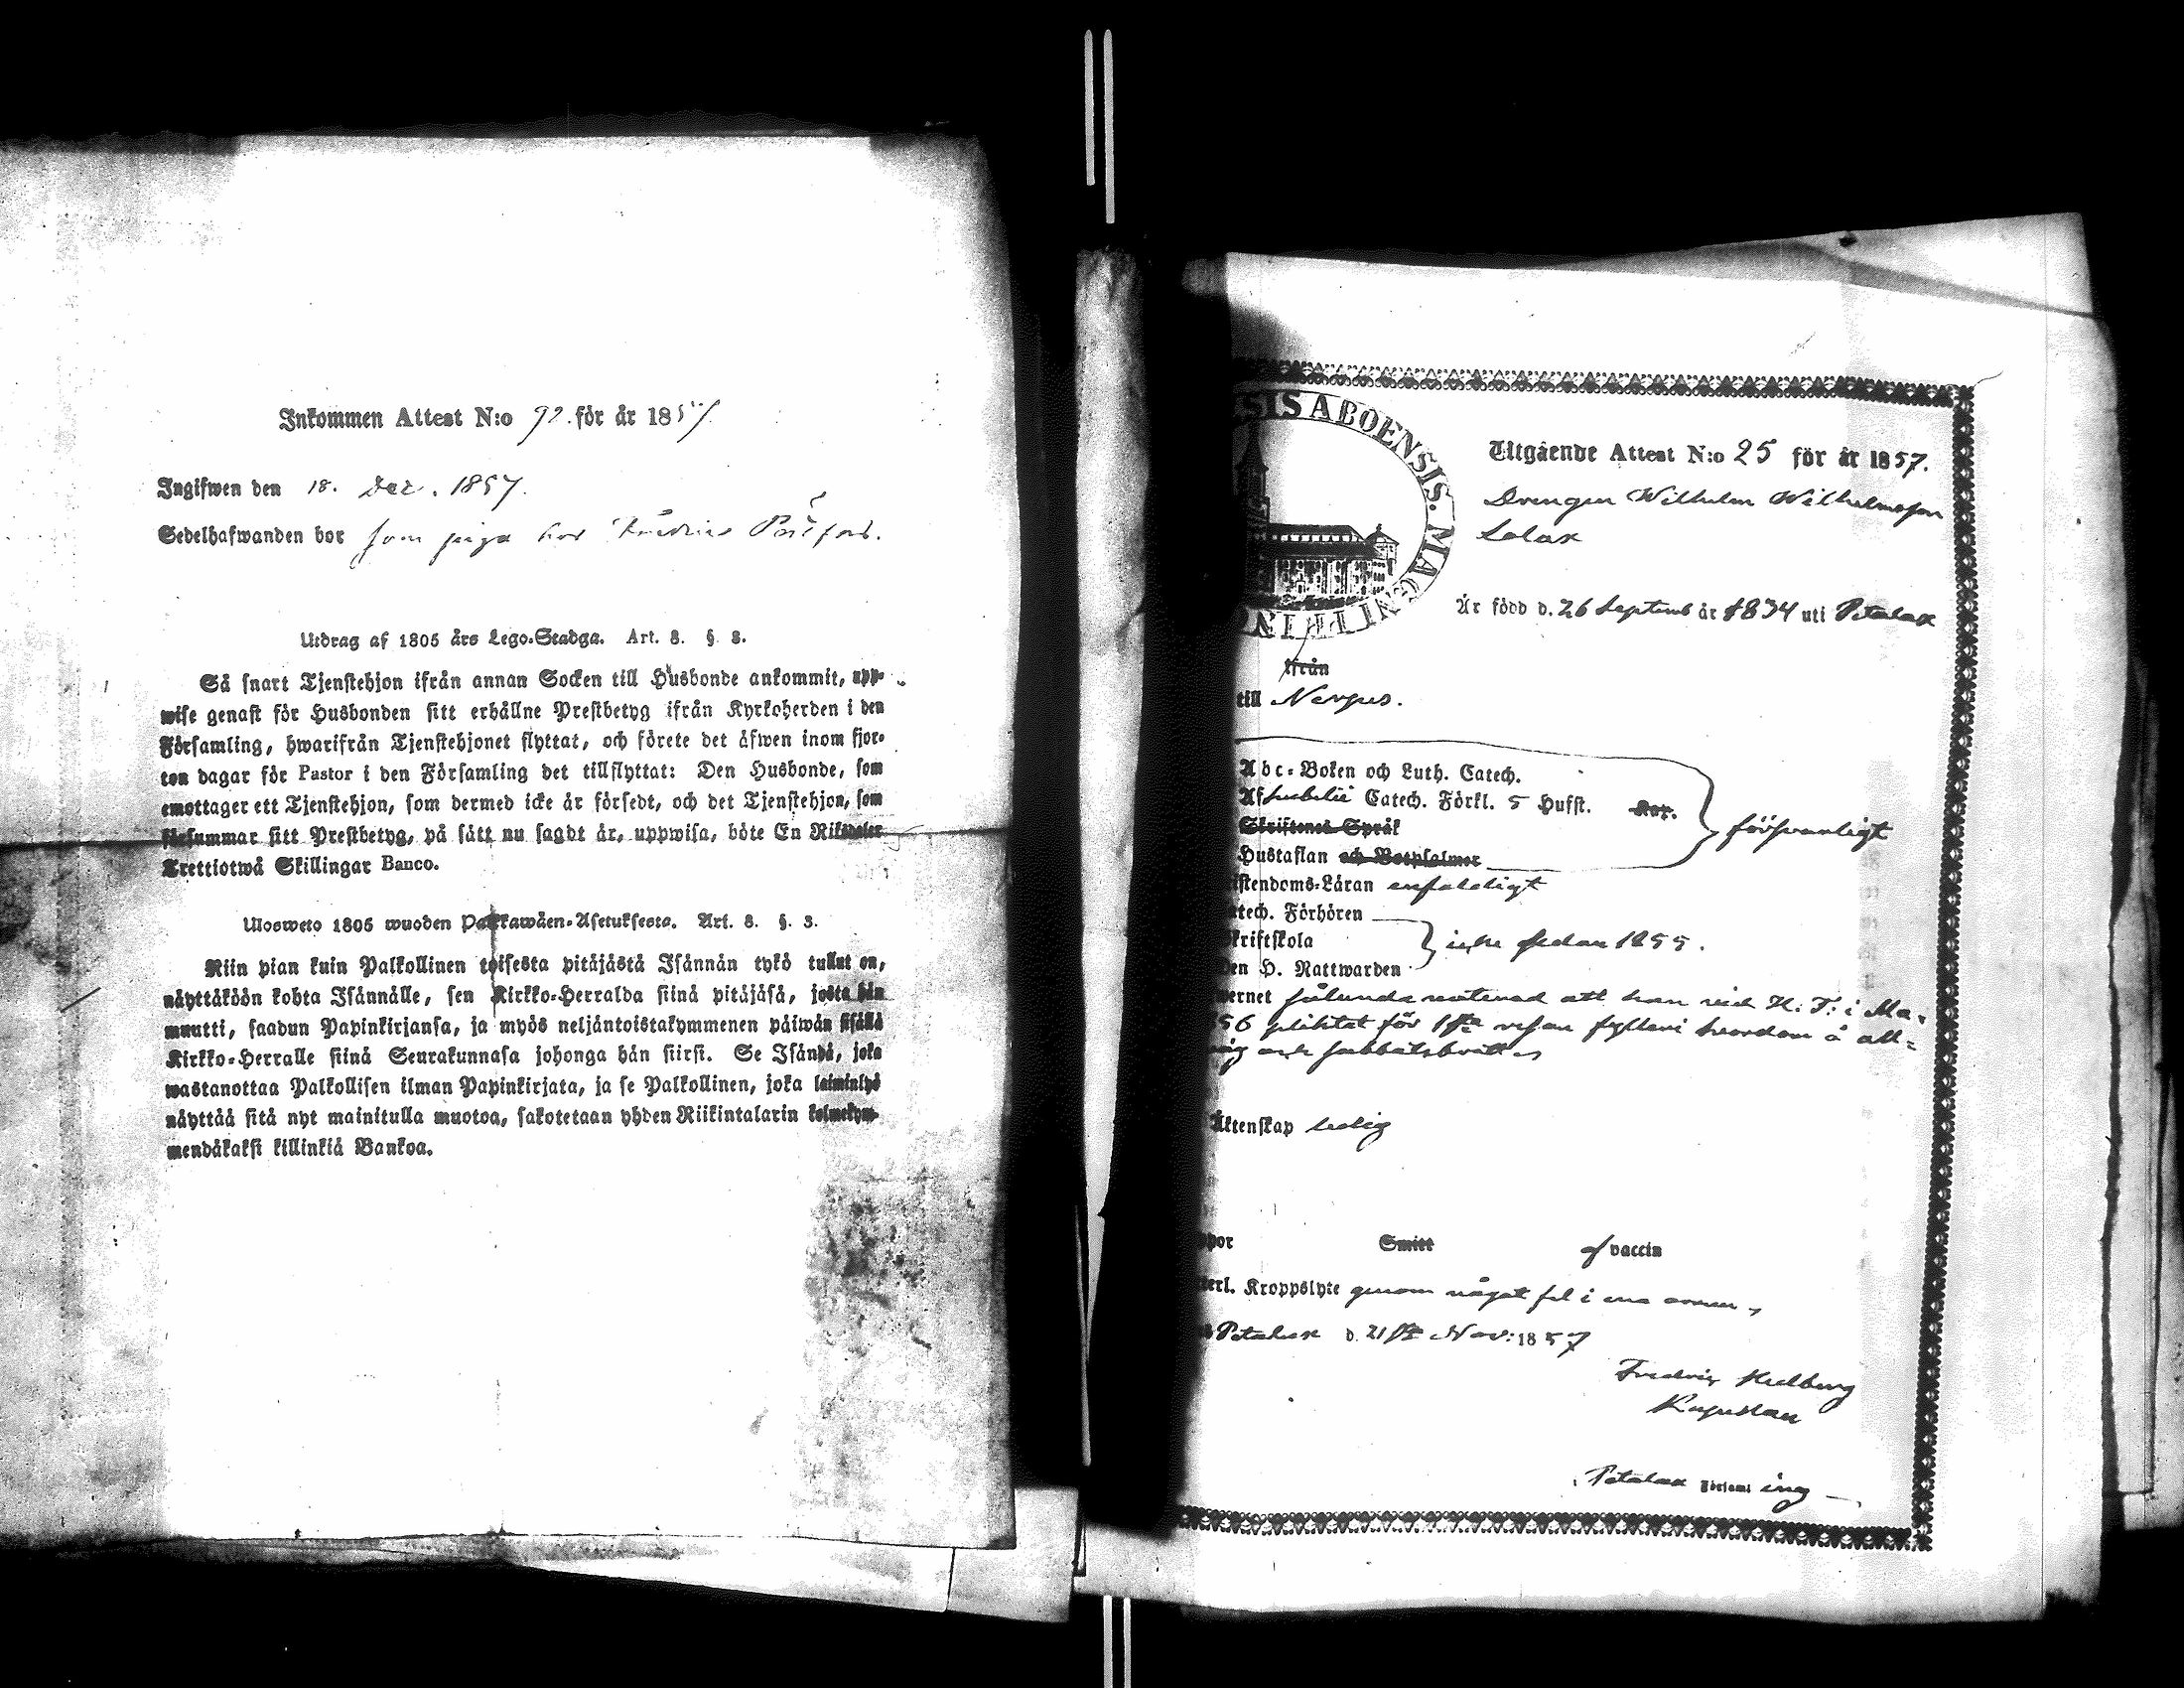 Inkommen Attest N:o 92. för år 1857.
Ingifwen den 18. Dec. 1857.
Sedelhafwanden bor som piga hos
Utdrag af 1805 års Lego-Stadga. Art. 8. §. 3.
Så snart Tjenstehjon ifrån annan Socken till Husbonde ankommit, upp-
wise genast för Husbonden sitt erhållne Prestbetyg ifrån Kyrkoherden i den
Församling, hwarifrån Tjenstehjonet flyttat, och förete det äfwen inom fjor-
ton dagar för Pastor i den Församling det tillflyttat: Den Husbonde, som
emottager ett Tjenstehjon, som dermed icke är försedt, och det Tjenstehjon, som
försummar sitt Prestbetyg, på sätt nu sagdt är, uppwisa, böte En Riksdaler
Trettiotwå Skillingar Banco.
Ulosweto 1805 wuoden Palkkawäen-Asetuksesta. Art. 8. §. 3.
Niin pian kuin Palkollinen toisesta pitäjästä Isännän tykö tullut on,
näyttäköön kohta Isännälle, sen Kirkko-Herralda siinä pitäjäsä, josta hän
muutti, saadun Papinkirjansa, ja myös neljäntoistakymmenen päiwän sisällä
Kirkko-Herralle siinä Seurakunnasa johonga hän siirsi. Se Isändä, joka
wastanottaa Palkollisen ilman Papinkirjata, ja se Palkollinen, joka laiminlyö
näyttää sitä nyt mainitulla muotoa, sakotetaan yhden Riikintalarin kolmekym-
mendäkaksi killinkiä Bankoa.
SIS ABOENSIS. MAGNI
Utgående Attest N:o 25 för år 1857.
Drengen Wilhelm Wilhelmsson
Solax
Är född d. 26 Septemb år 1834 uti Petalax
ifrån
till Nerpes.
Abc-Boken och Luth. Catech.
Af Svebelii Catech. Förkl. 5 Hufst. Kap.
Skriftenes Språk
försvarligt
Hustaflan och Botpsalmer
istendoms-Läran enfaldigt
atech. Förhören
kriftskola
icke sedan 1855.
den H. Nattwarden
wernet sålunda vitsord att han vid H. T. i Ma-
56 pliktat för 1sta resan fylleri hvardom å all-
väg och sabbatsbrott
Äktenskap ledig
ppor Smitt af vaccin
terl. Kroppslyte genom något fel i ena armen,
Petalax d. 21ste Nov: 1857
Fredrik Hedberg
Kapellan
Petalax Församling